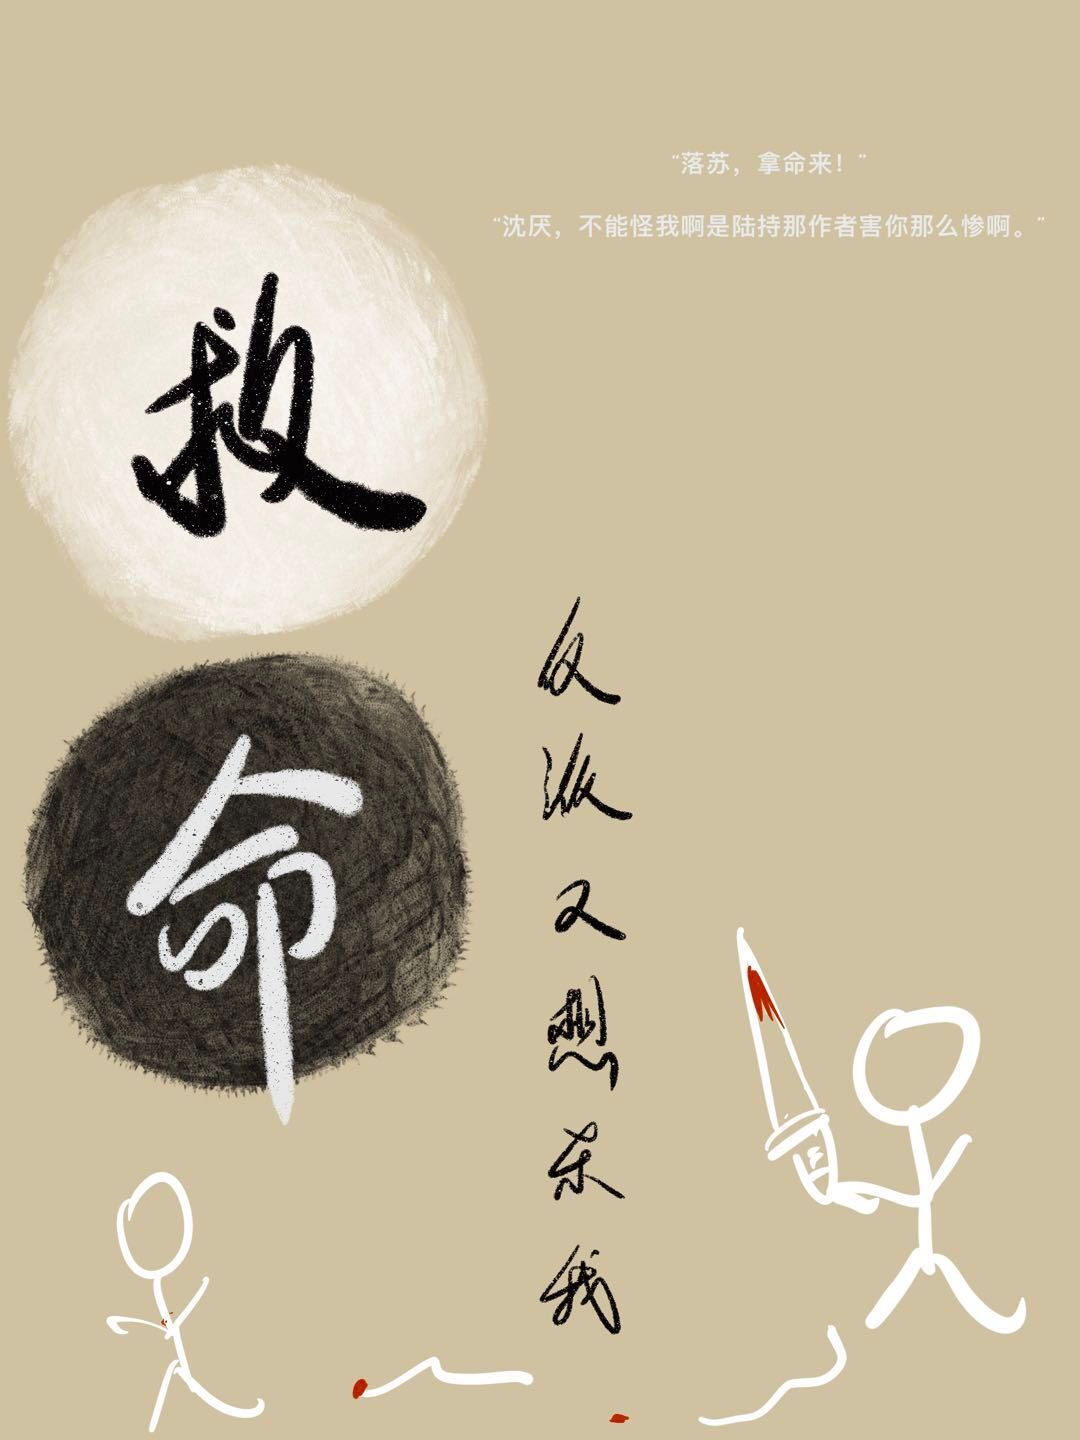 “落苏，拿命来！”
“沈厌，不能怪我啊是陆持那作者害你那么惨啊。”
救
命
反派又想杀我